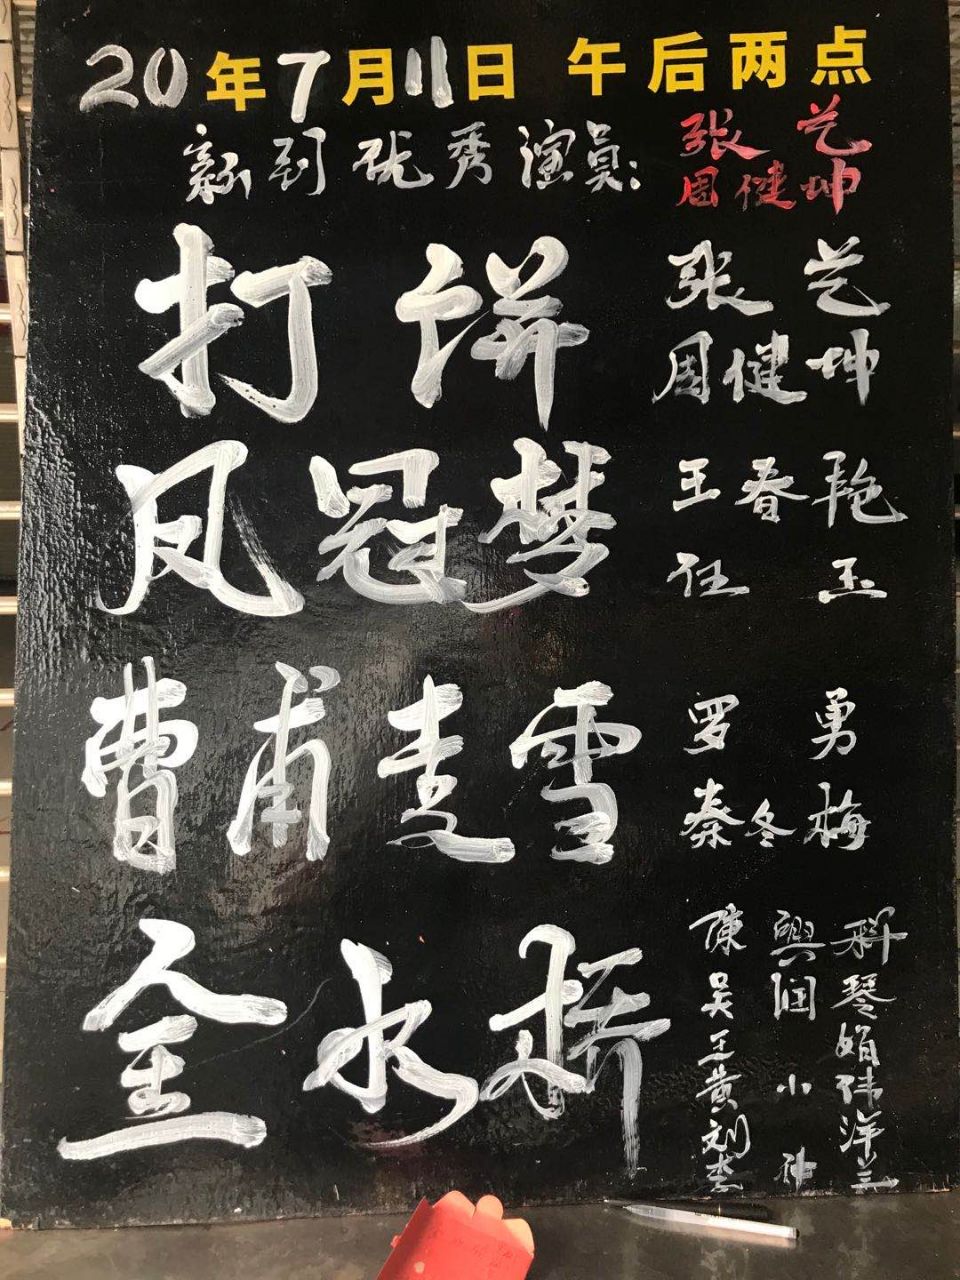 20年7月11日 午后两点
新到优秀演员:
张艺
周健坤
打饼
张艺
周健坤
凤冠梦
王春艳
任玉
曹甫走雪
罗勇
秦冬梅
金水桥
陳興科
吴润琴
王娟
黄小伟
刘洋
李 兰